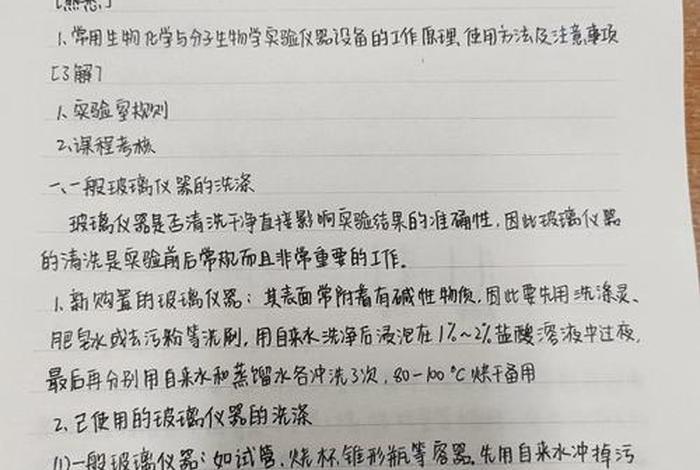 [熟悉]
1.常用生物化学与分子生物学实验仪器设备的工作原理、使用方法及注意事项
[了解]
1.实验室规则
2.课程考核
一、一般玻璃仪器的洗涤
玻璃仪器是否清洗干净直接影响实验结果的准确性,因此玻璃仪器
的清洗是实验前后常规而且非常重要的工作。
1.新购置的玻璃仪器:其表面常附着有碱性物质,因此要先用洗涤灵、
肥皂水或去污粉等洗刷,用自来水洗净后浸泡在1%~2%盐酸溶液中过夜,
最后再分别用自来水和蒸馏水各冲洗3次,80-100℃烘干备用
2.已使用的玻璃仪器的洗涤
(1)一般玻璃仪器:如试管、烧杯、锥形瓶等容器,先用自来水冲掉污